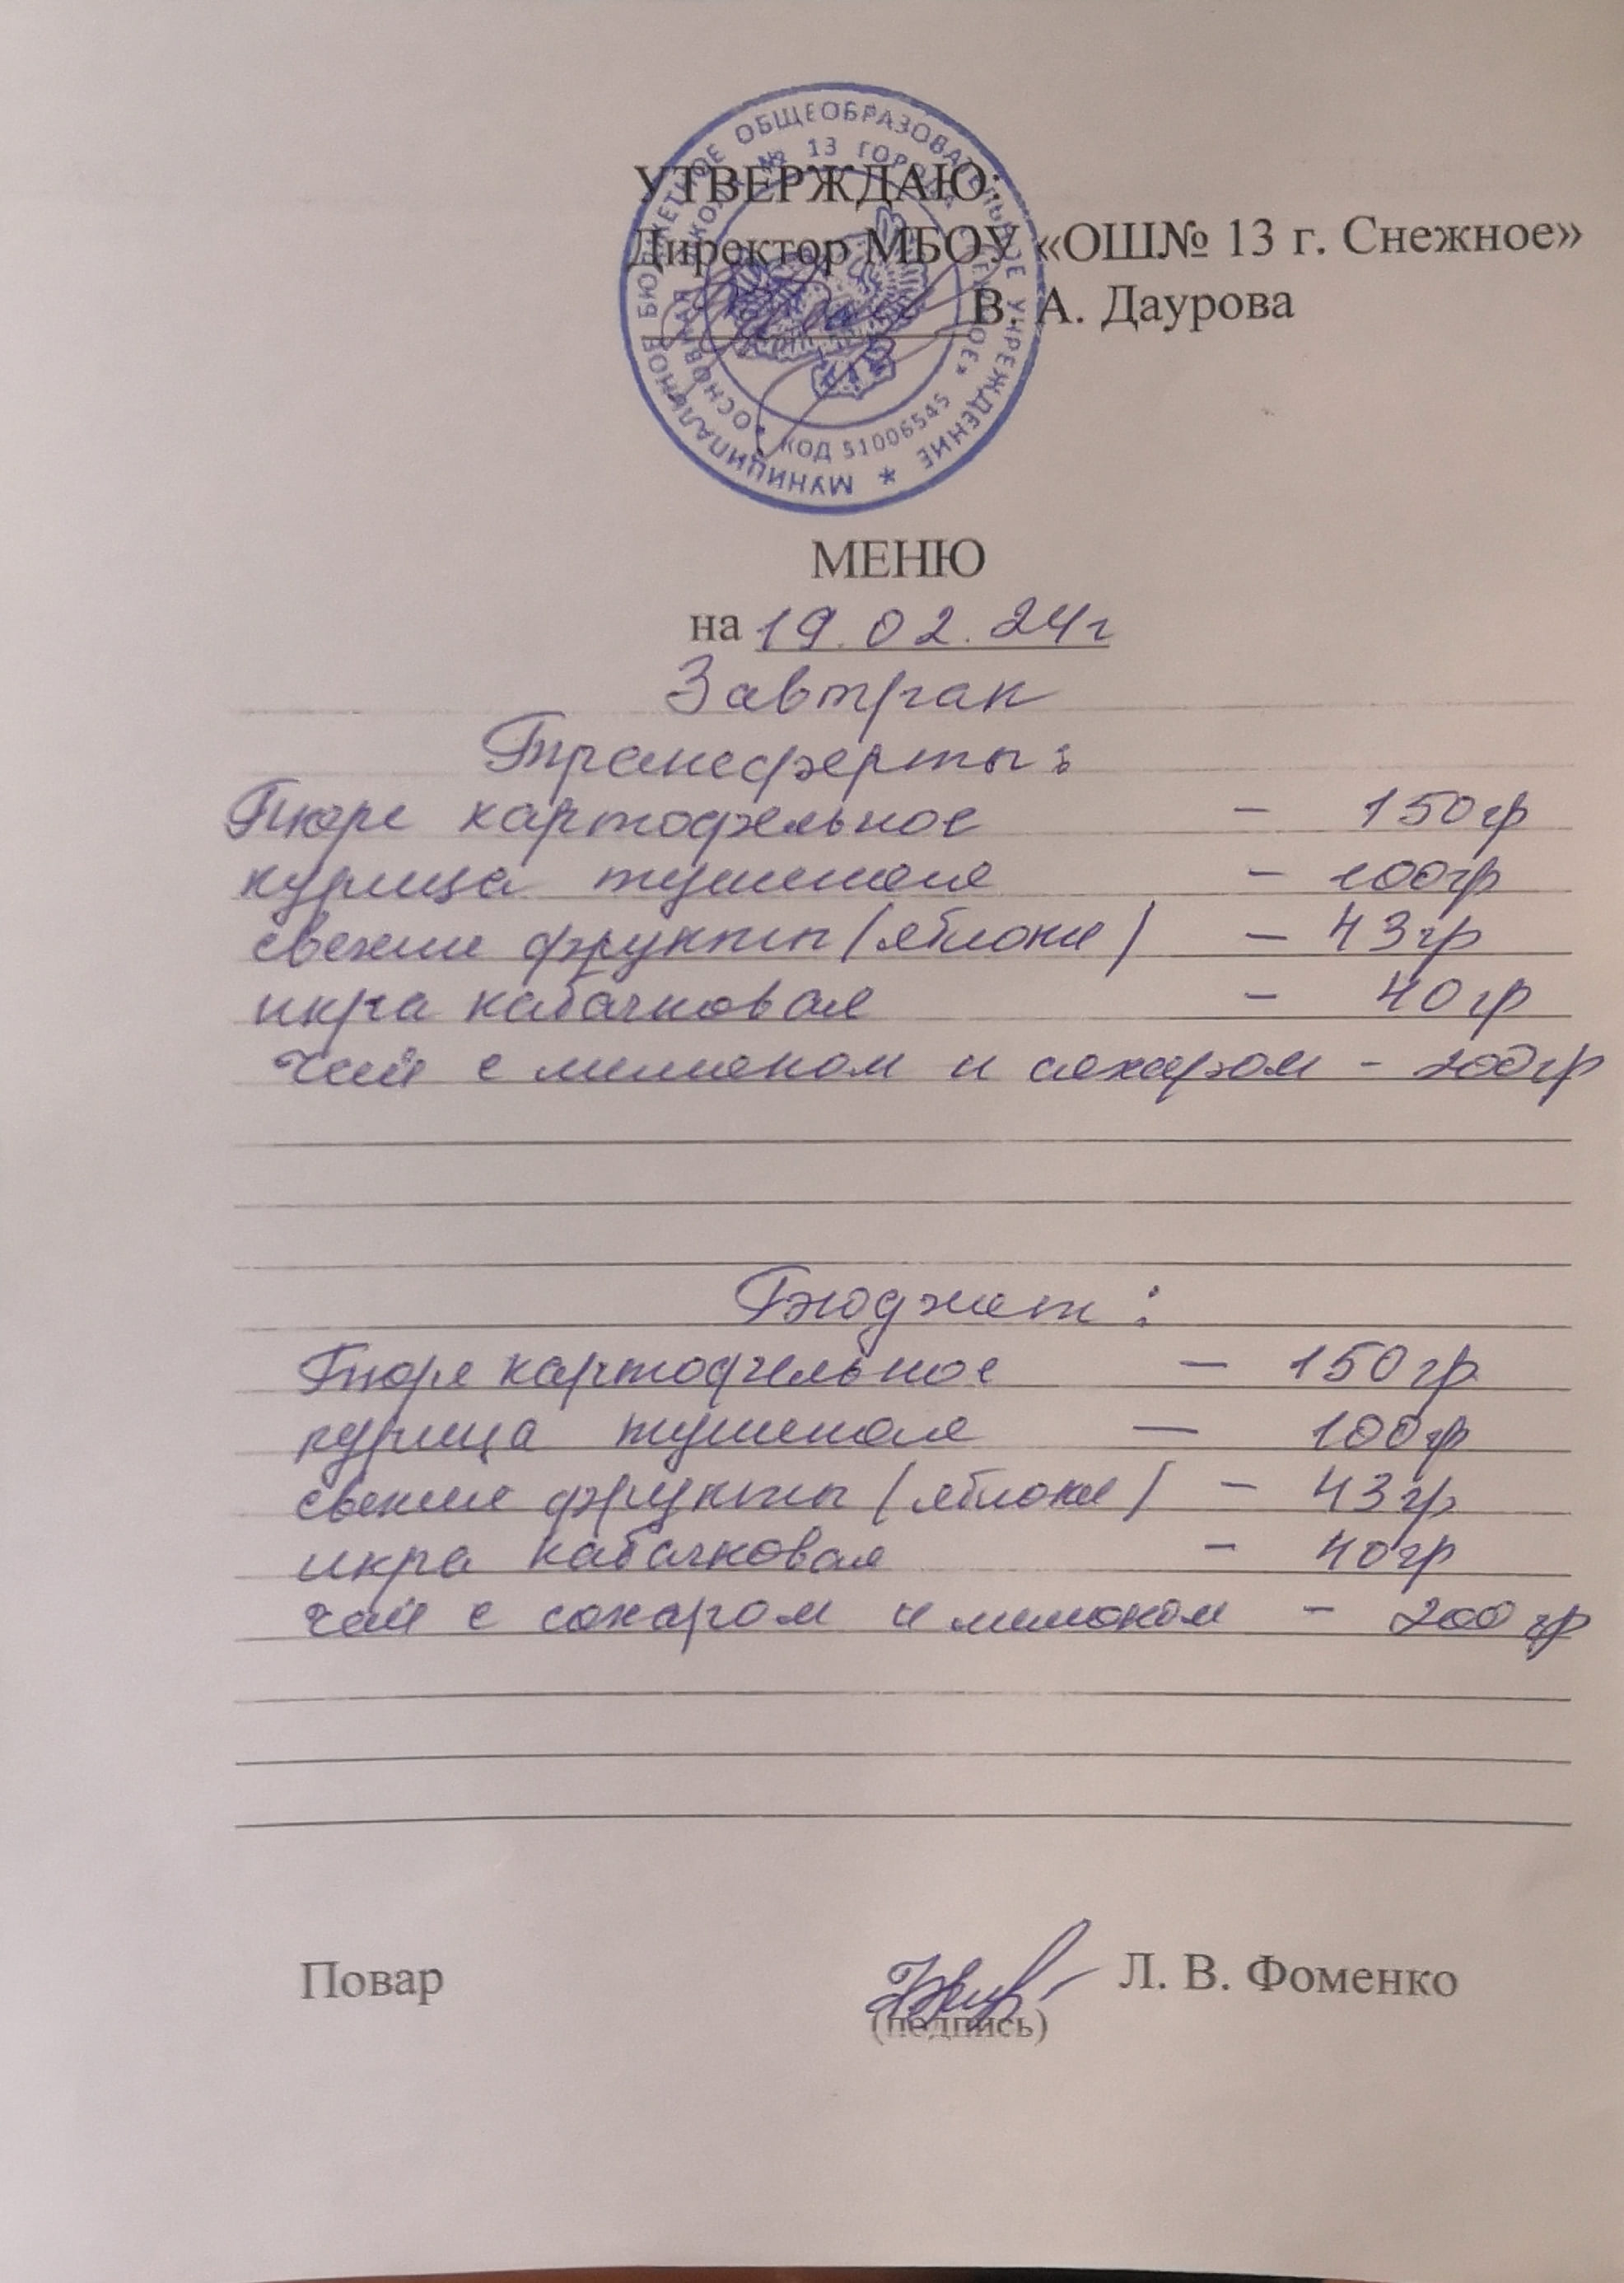 МУНИЦИПАЛЬНОЕ БЮДЖЕТНОЕ ОБЩЕОБРАЗОВАТЕЛЬНОЕ УЧРЕЖДЕНИЕ *
ОСНОВНАЯ ШКОЛА № 13 ГОРОДА
КОД 51006545
УТВЕРЖДАЮ:
Директор МБОУ «ОШ№ 13 г. Снежное»
В. А. Даурова
МЕНЮ
на 19.02.24г
Завтрак
Трансферты:
Пюре картофельное - 150гр
курица тушеная - 100гр
свежие фрукты (яблоки) - 43гр
икра кабачковая - 40гр
Чай с лимоном и сахаром - 200гр
Бюджет:
Пюре картофельное - 150гр
курица тушеная - 100гр
свежие фрукты (яблоки) - 43гр
икра кабачковая - 40гр
чай с сахаром и лимоном - 200гр
Повар Л. В. Фоменко
(подпись)